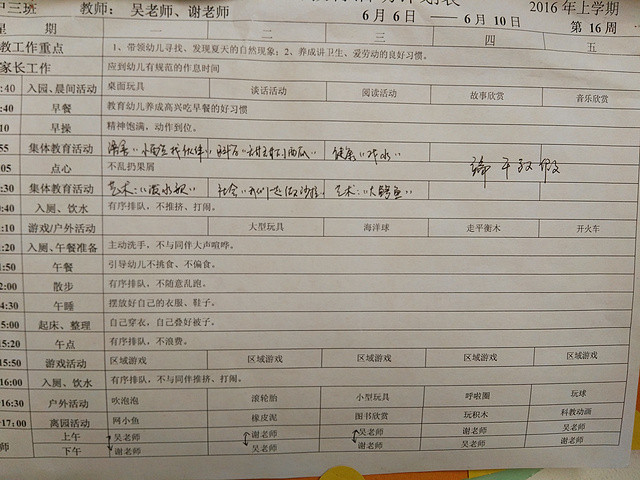 中三班 教师：吴老师、谢老师 6月6日 ——6月10日 2016年上学期
期 一 二 三 四 五 第16周
教工作重点 1、带领幼儿寻找、发现夏天的自然现象；2、养成讲卫生、爱劳动的良好习惯。
家长工作 应到幼儿有规范的作息时间
:40 入园、晨间活动 桌面玩具 谈话活动 阅读活动 故事欣赏 音乐欣赏
:40 早餐 教育幼儿养成高兴吃早餐的好习惯
10 早操 精神饱满，动作到位。
55 集体教育活动 健康："戏水" 端午放假
05 点心 不乱扔果屑
:30 集体教育活动 艺术： 社会： 艺术："大鳄鱼"
0:40 入厕、饮水 有序排队，不推挤、打闹。
:10 游戏/户外活动 大型玩具 海洋球 走平衡木 开火车
:20 入厕、午餐准备 主动洗手，不与同伴大声喧哗。
:50 午餐 引导幼儿不挑食、不偏食。
2:00 散步 有序排队，不随意乱跑。
4:30 午睡 摆放好自己的衣服、鞋子。
5:00 起床、整理 自己穿衣，自己叠好被子。
15:20 午点 有序排队，不浪费。
15:50 游戏活动 区域游戏 区域游戏 区域游戏 区域游戏 区域游戏
16:00 入厕、饮水 有序排队，不与同伴推挤、打闹。
16:30 户外活动 吹泡泡 滚轮胎 小型玩具 呼啦圈 玩球
17:00 离园活动 网小鱼 橡皮泥 图书欣赏 玩积木 科教动画
师 上午 吴老师 谢老师 吴老师 谢老师 吴老师
下午 谢老师 吴老师 谢老师 吴老师 谢老师